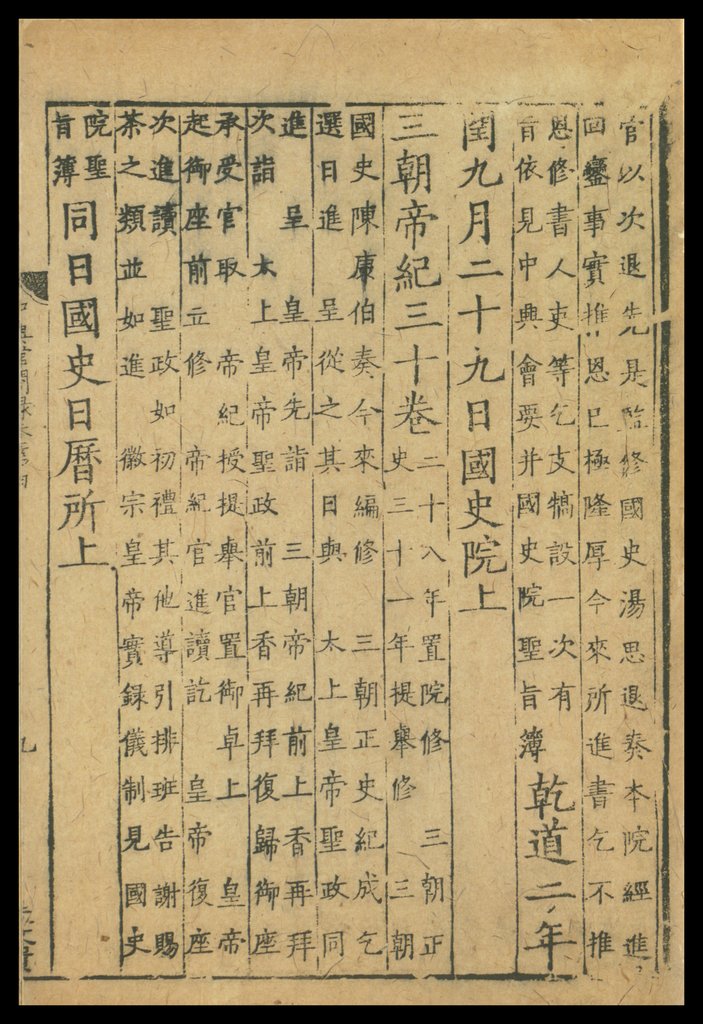 官以次退先是監修國史湯思退奏本院經進
回鑾事實推恩已極隆厚今來所進書乞不推
恩修書人吏等乞支犒設一次有
旨依見中興會要并國史院聖旨簿
乾道二年
閏九月二十九日國史院上
三朝帝紀三十卷
二十八年置院修 三朝正
史三十一年提舉修 三朝
國史陳康伯奏今來編修 三朝正史紀成乞
選日進 呈從之其日與 太上皇帝聖政同
進 呈 皇帝先詣 三朝帝紀前上香再拜
次詣 太上皇帝聖政前上香再拜復歸御座
承受官取 帝紀授提舉官置御卓上 皇帝
起御座前立修 帝紀官進讀訖 皇帝復座
次進讀 聖政如初禮其他導引排班告謝賜
茶之類並如進 徽宗皇帝實録儀制見國史
院聖
旨簿
同日國史日曆所上
九